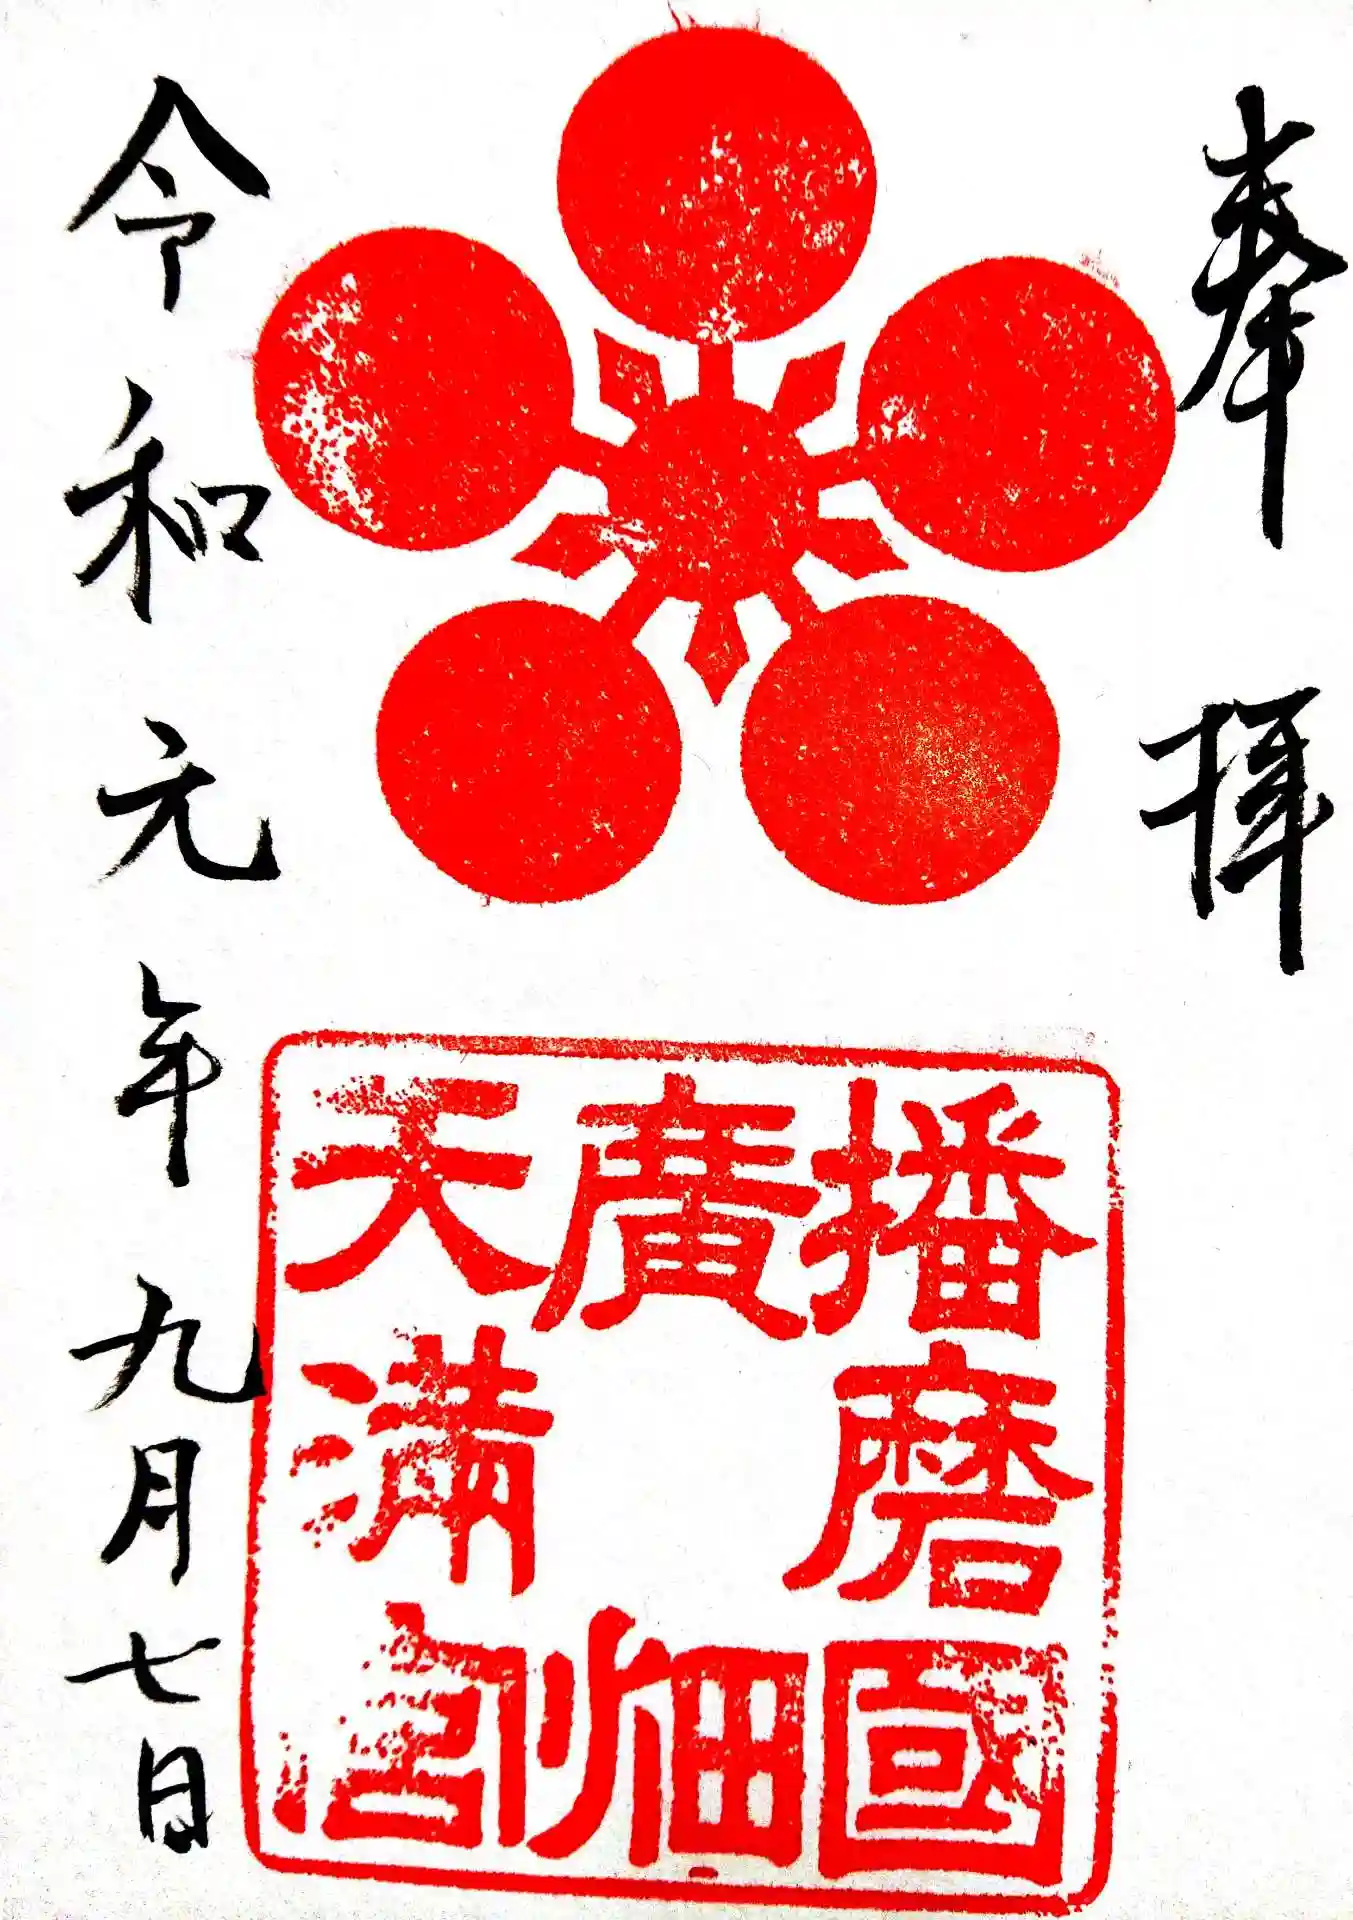 奉拝
播磨國
廣畑
天満宮
令和元年九月七日